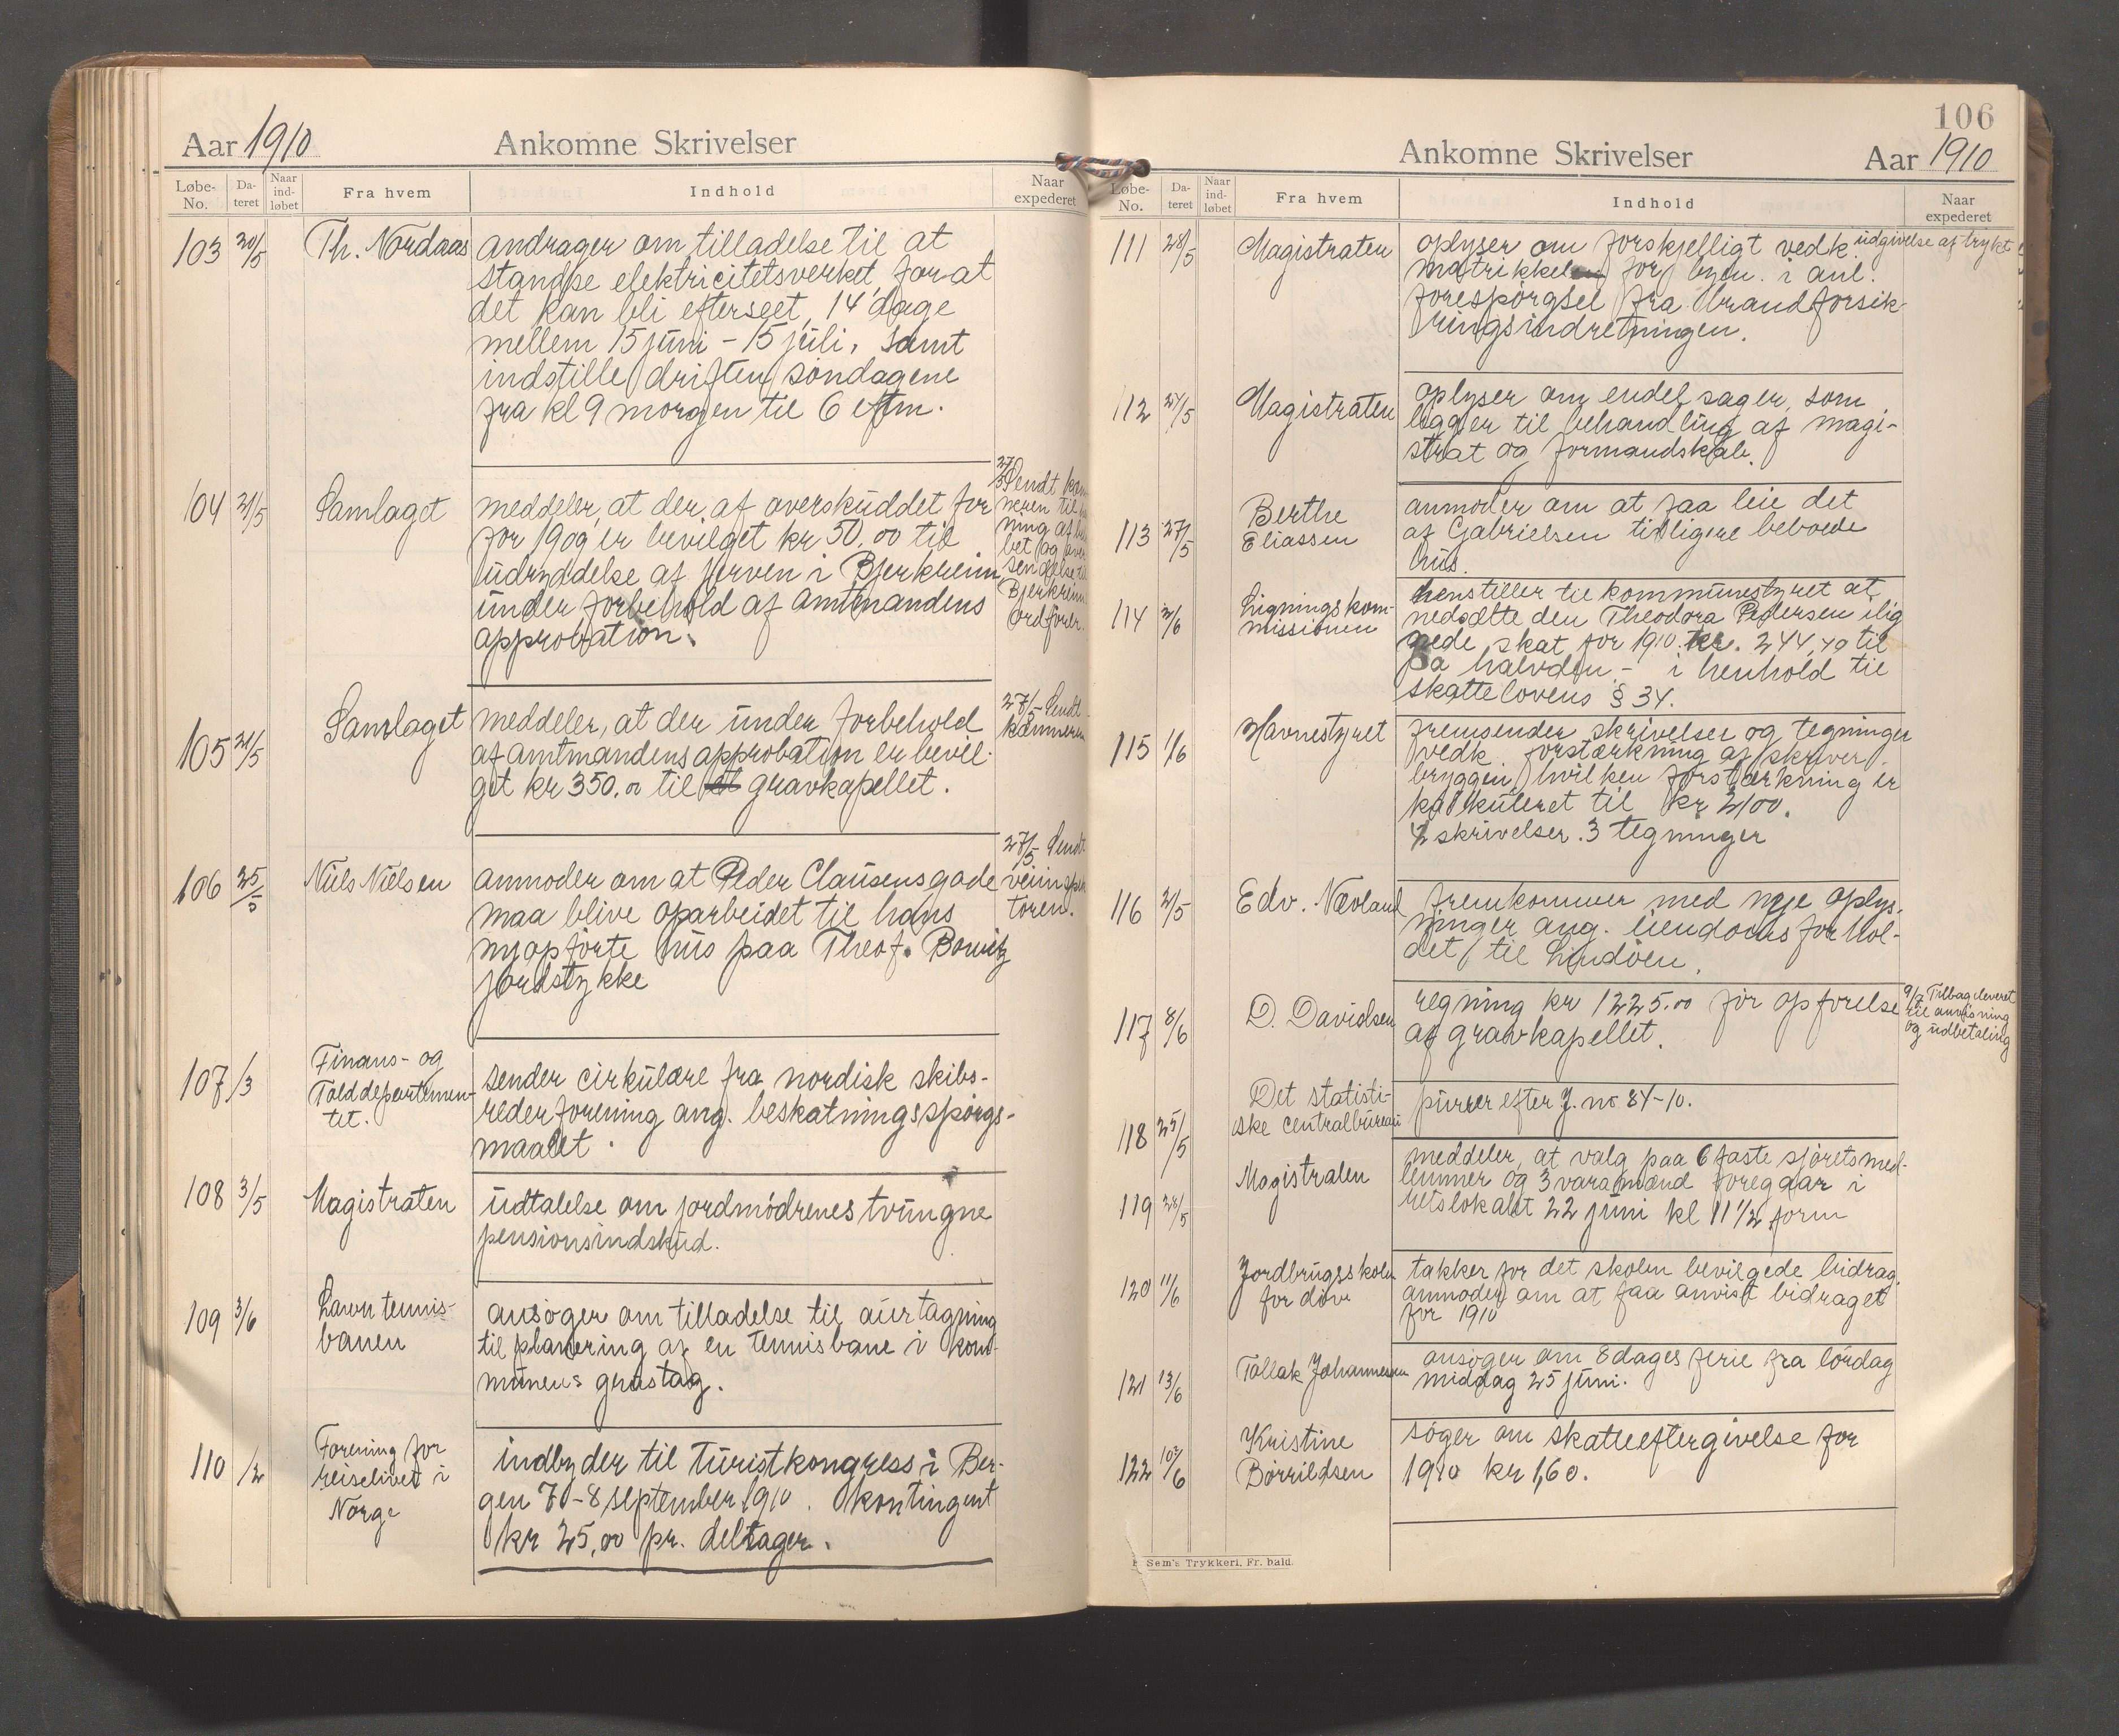 Aar 1910
Ankomne Skrivelser
Løbe-No.
Da-teret
Naar ind-løbet
Fra hvem
Indhold
Naar expederet
103 20/5 Th. Nordaas andrager om tilladelse til at
standse elektricitetsverket, for at
det kan bli efterseet, 14 dage
mellem 15 juni - 15 juli, samt
indstille driften søndagene
fra kl 9 morgen til 6 eftm.
104 21/5 Samlaget meddeler, at der af overskuddet for
for 1909 er bevilget kr 50.00 til
udryddelse af jerven i Bjerkreim
under forbehold af amtmandens
approbation.
27/5 Sendt
til
bet og
sendelse til
Bjerkreim
ordfører.
105 21/5 Samlaget meddeler, at der under forbehold
af amtmandens approbation er bevil-
get kr 350.00 til gravkapellet.
27/5 Sendt
kæmneren
106 25/5 Niels Nielsen anmoder om at Peder Clausens gade
maa blive oparbeidet til hans
nyopførte hus paa Theof. Bowitz
jordstykke
27/5 Sendt
veiinspek
tøren.
107 /3 Finans- og
Tolddepartemen-
tet.
sender cirkulære fra nordisk skibs-
rederforening ang. beskatningsspørgs-
maalet.
108 3/5 Magistraten udtalelse om jordmødrenes tvungne
pensionsindskud.
109 3/6 Lawn tennis-
banen
ansøger om tilladelse til aurtagning
til planering af en tennisbane i kom-
munens grustag.
110 /2 Forening for
reiselivet i
Norge
indbyder til turistkongress i Ber-
gen 7-8 september 1910. Kontingent
kr 25,00 pr. deltager.
106
Ankomne Skrivelser
Aar 1910
Løbe-No.
Da-teret
Naar ind-løbet
Fra hvem
Indhold
Naar expederet
111 28/5 Magistraten oplyser om forskjelligt vedk. udgivelse af trykt
matrikkel for byen i anl.
forespørgsel fra brandforsik-
ringsindretningen.
112 21/5 Magistraten oplyser om endel sager, som
ligger til behandling af magi-
strat og formandskab.
113 27/5 Berthe
Eliassen
anmoder om at faa leie det
af Gabrielsen tidligere beboede
hus.
114 2/6 Ligningskom-
missionen
henstiller til kommunestyret at
nedsætte den Theodora Pedersen ilig
nede skat for 1910 kr. 244,40 til
halvden - i henhold til
skattelovens § 34.
115 1/6 Havnestyret fremsender skrivelser og tegninger
vedk. forstærkning af skriver
bryggen, hvilken forstærkning er
kalkuleret til kr 2100.
4 skrivelser. 3 tegninger
116 21/5 Edv. Nævland fremkommer med nye oplys-
ninger ang. eiendomsforhol-
det til Lindøen.
117 8/6 D. Davidsen regning kr 1225.00 for opførelse
af gravkapellet.
9/7 Tilbageleveret
til anvisning
og udbetaling
118 25/5 Det statisti-
ske centralbureau
purrer efter J. no 84-10.
119 28/5 Magistraten meddeler, at valg paa 6 faste sjøretsmed-
lemmer og 3 varamænd foregaar i
retslokalet 22 juni kl 11 1/2 form
120 11/6 Jordbrugsskolen
for døve
takker for det skolen bevilgede bidrag,
anmoder om at faa anvist bidraget
for 1910
121 13/6 Tollak Johannesen ansøger om 8 dages ferie fra lørdag
middag 25 juni.
122 10/6 Kristine
Børrildsen
søger om skatteeftergivelse for
1910 kr 1,60.
Sem's Trykkeri, Fr. hald.